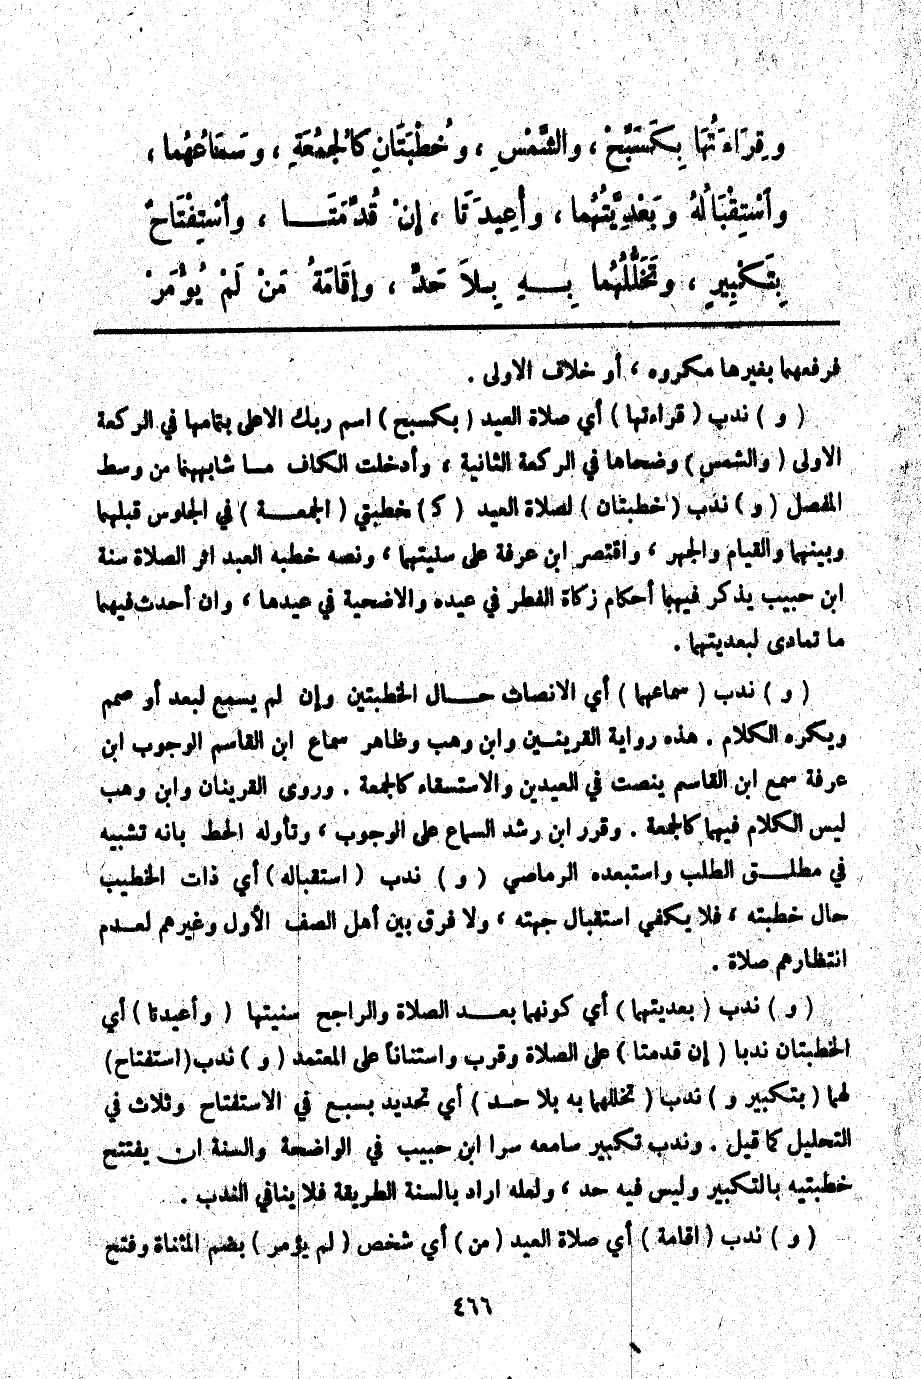 وَقِرَاءَتُهَا بِكَسَبِّحْ ، والشَّمْسِ ، وَخُطْبَتَانِ كَالْجُمُعَةِ ، وَسَمَاعُهُما ،
وَاسْتِقْبَالُهُ وَبَعْدِيَّتُهُما ، وأُعِيدَتَا ، إِنْ قُدِّمَتَا ، واسْتِفْتَاحٌ
بِتَكْبِيرٍ ، وَتَخَلُّلُهُما بِهِ بِلاَ حَدٍّ ، وإِقَامَةُ مَنْ لَمْ يُؤْمَرْ
فرفعهما بغيرها مكروه ، أو خلاف الاولى .
( و ) ندب ( قراءتها ) أي صلاة العيد ( بكسبح ) اسم ربك الاعلى بتمامها في الركعة
الاولى ( والشمس ) وضحاها في الركعة الثانية ، وأدخلت الكاف ما شابههما من وسط
المفصل ( و ) ندب ( خطبتان ) لصلاة العيد ( كـ ) خطبتي ( الجمعة ) في الجلوس قبلهما
وبينهما والقيام والجهر ، واقتصر ابن عرفة على سنيتهما ، ونصه خطبه العبد اثر الصلاة سنة
ابن حبيب يذكر فيهما أحكام زكاة الفطر في عيده والاضحية في عيدها ، وان أحدث فيهما
ما تمادى لبعديتهما .
( و ) ندب ( سماعهما ) أي الانصات حال الخطبتين وإن لم يسمع لبعد أو صمم
ويكره الكلام . هذه رواية القرينين وابن وهب وظاهر سماع ابن القاسم الوجوب ابن
عرفة سمع ابن القاسم ينصت في العيدين والاستسقاء كالجمعة . وروى القرينان وابن وهب
ليس الكلام فيهما كالجمعة . وقرر ابن رشد السماع على الوجوب ، وتأوله الحط بانه تشبيه
في مطلق الطلب واستبعده الرماصي ( و ) ندب ( استقباله ) أي ذات الخطيب
حال خطبته ، فلا يكفي استقبال جهته ، ولا فرق بين أهل الصف الأول وغيرهم لعدم
انتظارهم صلاة .
( و ) ندب ( بعديتهما ) أي كونهما بعد الصلاة والراجح سنيتها ( وأعيدتا ) أي
الخطبتان ندبا ( إن قدمتا ) على الصلاة وقرب واستناناً على المعتمد ( و ) ندب ( استفتاح )
لهما ( بتكبير و ) ندب ( تخللهما به بلا حد ) أي تحديد بسبع في الاستفتاح وثلاث في
التحليل كما قيل . وندب تكبير سامعه سرا ابن حبيب في الواضحة والسنة ان يفتتح
خطبتيه بالتكبير وليس فيه حد ، ولعله اراد بالسنة الطريقة فلا ينافي الندب .
( و ) ندب ( اقامة ) أي صلاة العيد ( من ) أي شخص ( لم يؤمر ) بضم المثناة وفتح
٤٦٦